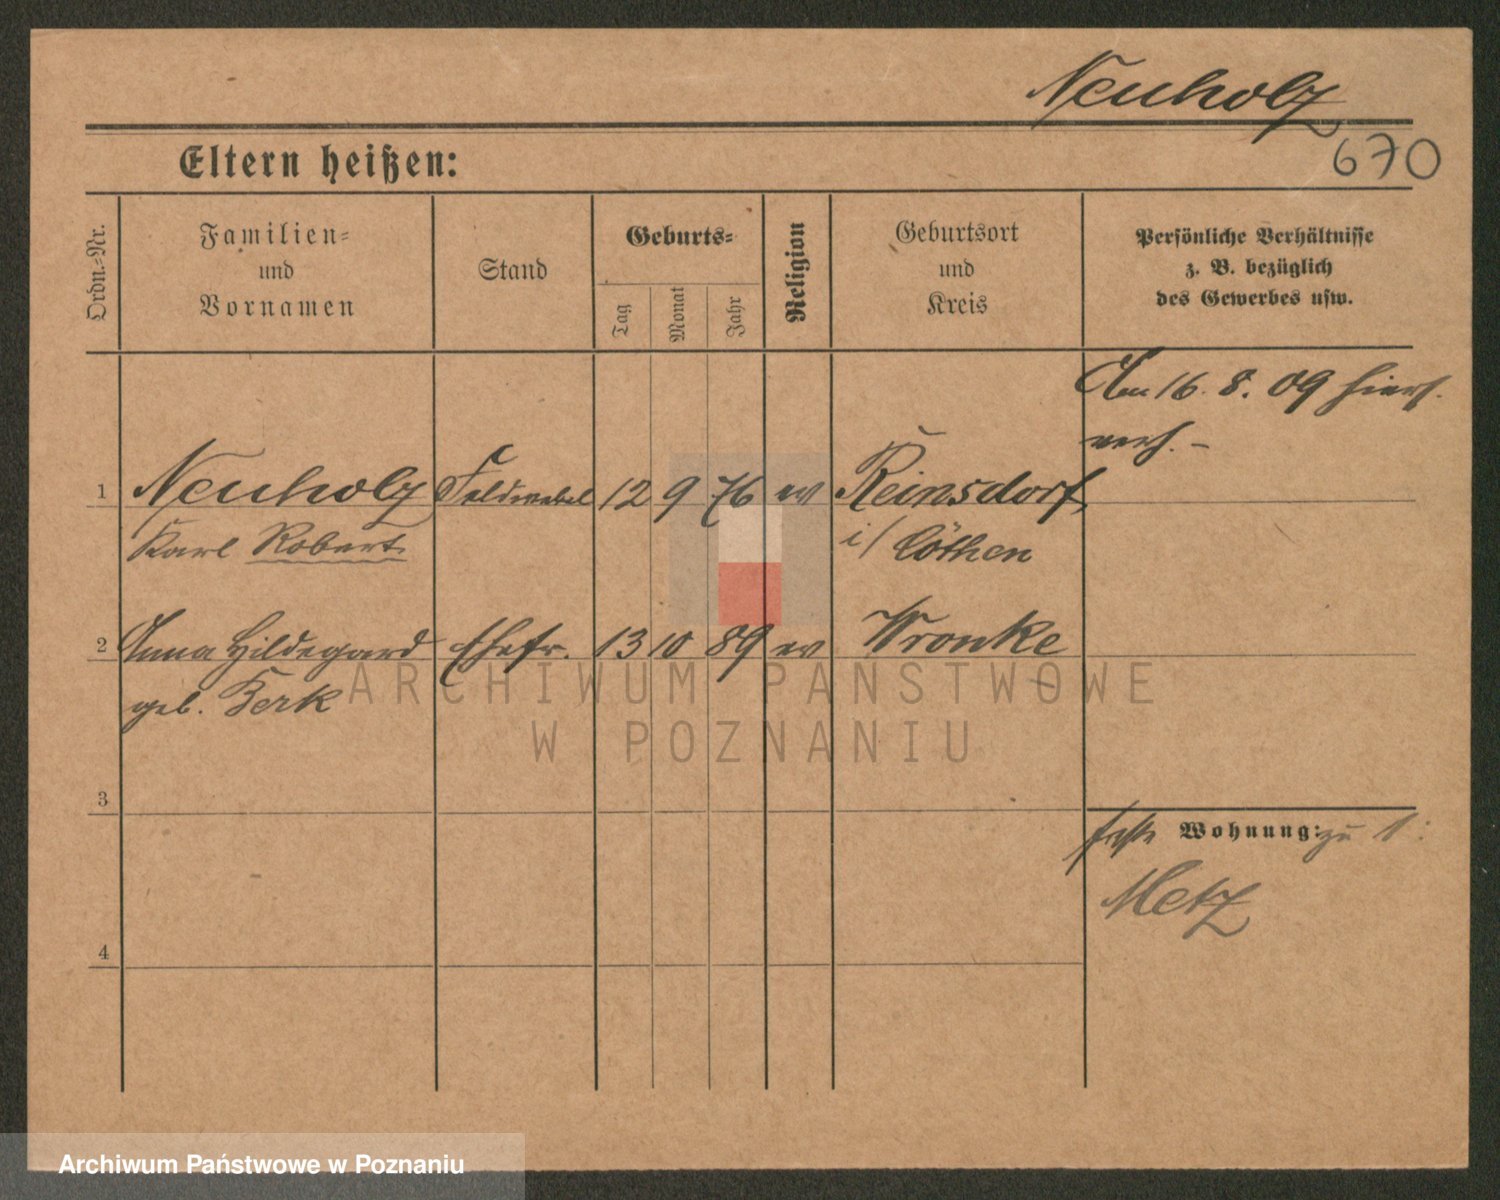 Neuholz
670
Eltern heißen:
Ordn.-Nr.
Familien-
und
Vornamen
Stand
Geburts-
Tag
Monat
Jahr
Religion
Geburtsort
und
Kreis
Persönliche Verhältnisse
z. B. bezüglich
des Gewerbes usw.
Am 16. 8. 09 hiers.
verh. –
1 Neuholz Feldwebel 12 9 76 ev Reinsdorf
Karl Robert i/ Cöthen
2 Anna Hildegard Ehefr. 13 10 89 ev Wronke
geb. Zerk
ARCHIWUM PAŃSTWOWE
W POZNANIU
3
Wohnung: zu 1:
Metz
4
Archiwum Państwowe w Poznaniu